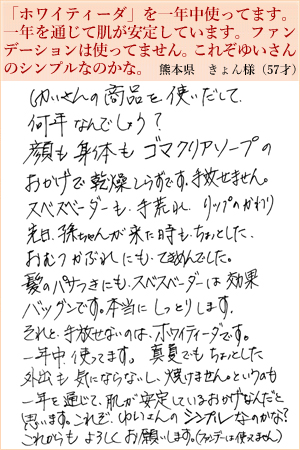 「ホワイティーダ」を一年中使ってます。
一年を通じて肌が安定しています。ファン
デーションは使ってません。これぞゆいさん
のシンプルなのかな。 熊本県 きょん様(57才)
ゆいさんの商品を使いだして、
何年なんでしょう?
顔も身体もゴマクリアソープの
おかげで乾燥しらずです。手放せません。
スベスベーダーも、手荒れ、リップのかわり
先日、孫ちゃんが来た時も、ちょっとした、
おむつかぶれにも、てきめんでした。
髪のパサつきにも、スベスベーダーは効果
バツグンです。本当にしっとりします。
それと、手放せないのは、ホワイティーダです。
一年中、使ってます。真夏でもちょっとした
外出も気にならないし、焼けません。というのも
一年を通じて、肌が安定しているおかげなんだと
思います。これぞ、ゆいさんのシンプルなのかな?
これからもよろしくお願いします。(ファンデーは使ってません)